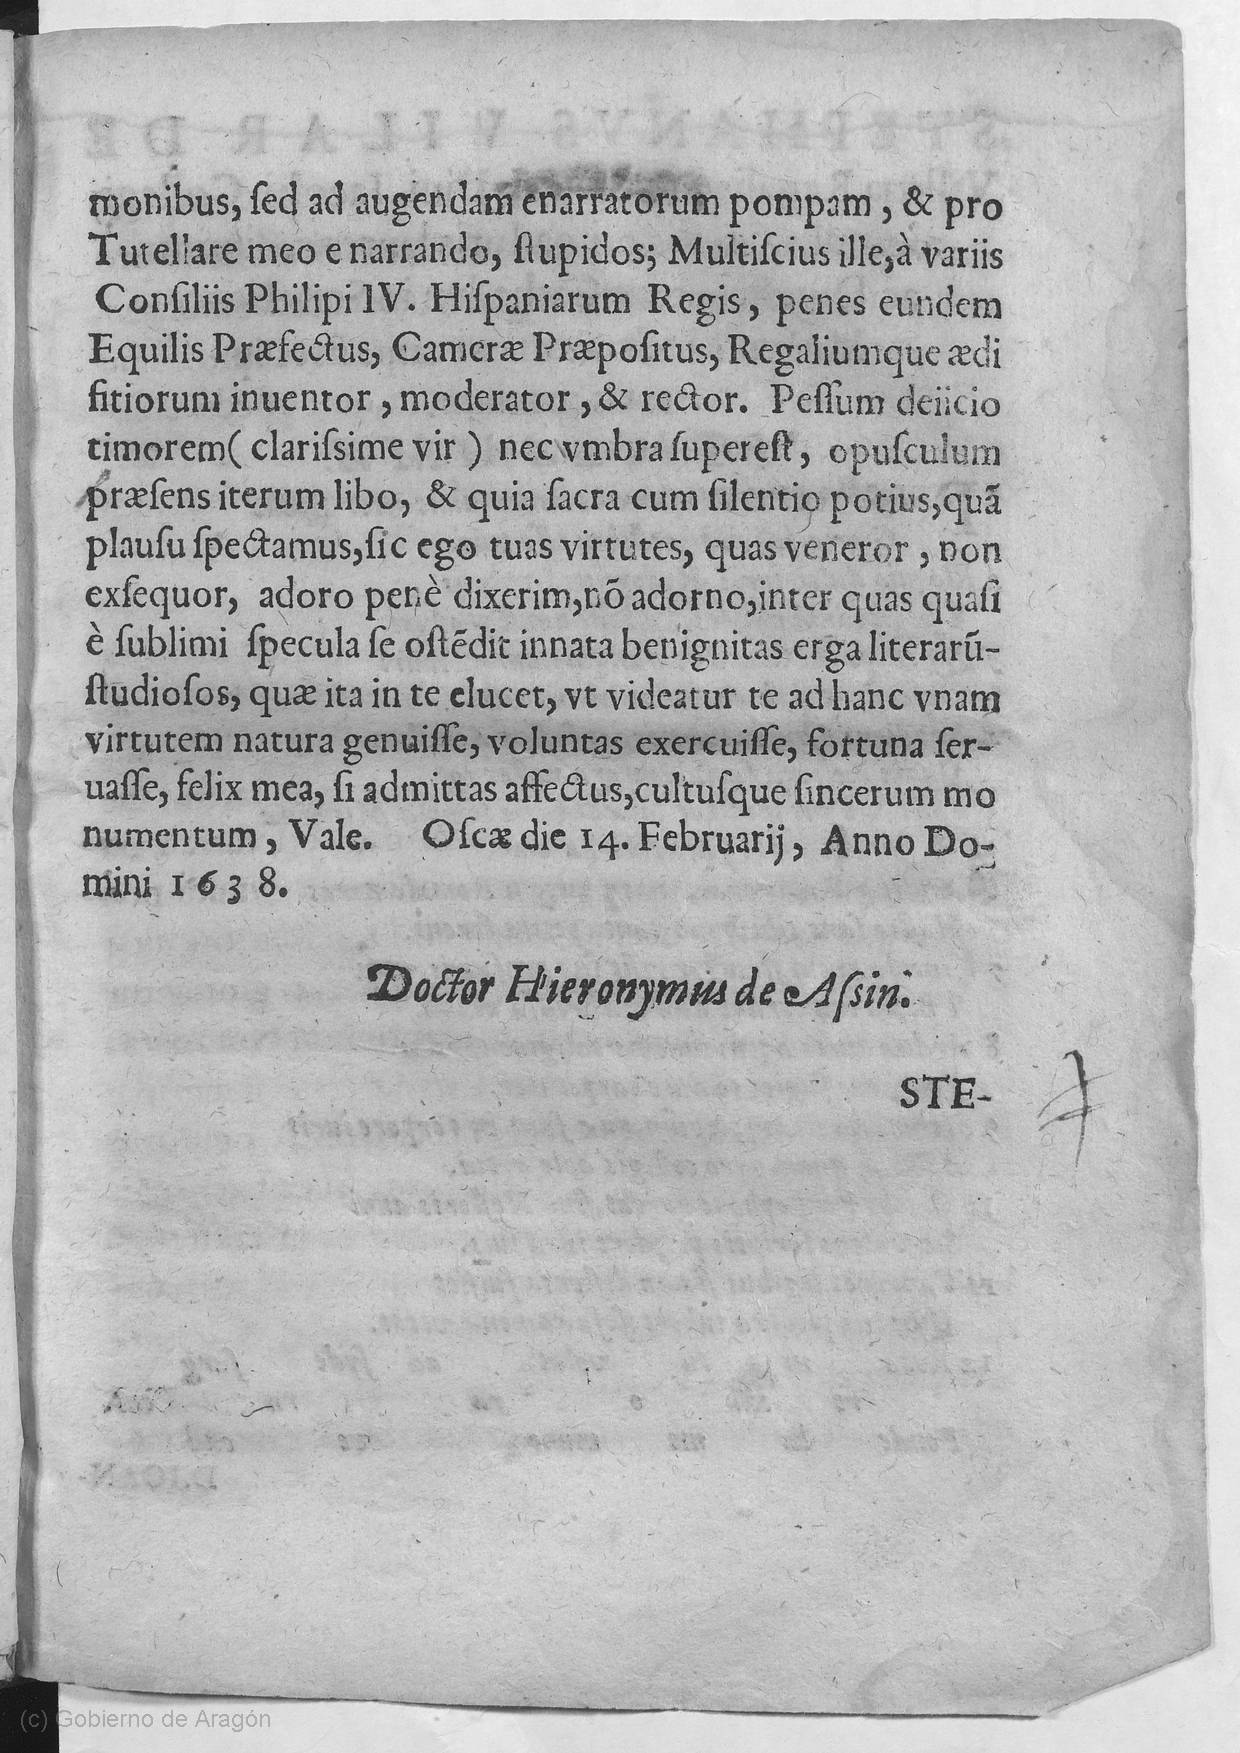 monibus, ſed ad augendam enarratorum pompam , & pro
Tutellare meo e narrando, ſtupidos; Multiſcius ille,à variis
Conſiliis Philipi IV. Hiſpaniarum Regis, penes eundem
Equilis Præfectus, Cameræ Præpoſitus, Regaliumque ædi
fitiorum inuentor , moderator , & rector. Peſſum deiicio
timorem( clariſsime vir ) nec vmbra ſupereſt, opuſculum
præſens iterum libo, & quia ſacra cum ſilentio potius,quã
plauſu ſpectamus,ſic ego tuas virtutes, quas veneror , non
exſequor, adoro penè dixerim,nõ adorno,inter quas quaſi
è ſublimi ſpecula ſe oſtẽdit innata benignitas erga literarũ-
ſtudioſos, quæ ita in te elucet, vt videatur te ad hanc vnam
virtutem natura genuiſſe, voluntas exercuiſſe, fortuna ſer-
uaſſe, felix mea, ſi admittas affectus,cultuſque ſincerum mo
numentum , Vale. Oſcæ die 14. Februarij, Anno Do-
mini 1638.
Doctor Hieronymus de Aſsin.
STE-
(c) Gobierno de Aragón